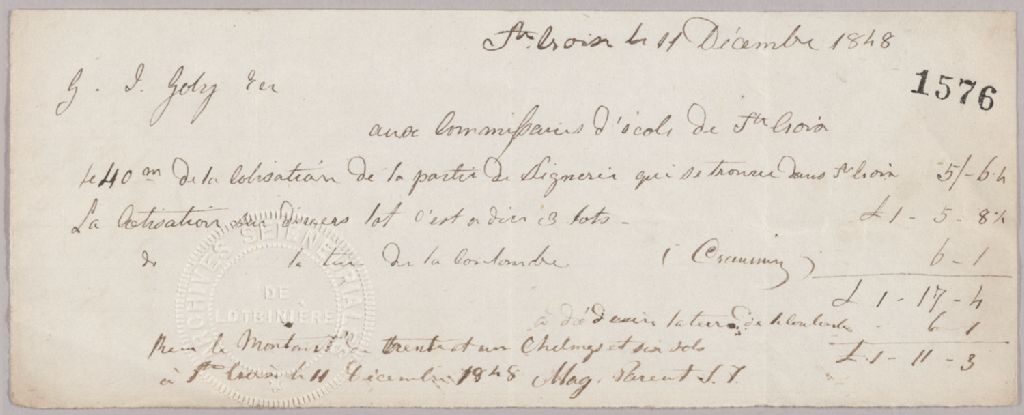 Ste Croix le 11 Décembre 1848
1576
G. J. Joly
aux Commissaires d'école de Ste Croix
le 40m de la Cotisation de la partie de Signerie qui se trouve dans Ste Croix 5/-6½
La Cotisation sur divers lot c'est a dire 3 lots - £1-5-8½
do la terre de la Coulombe (Cranning) 6-1
£1-17-4
à déduire la terre de la Coulombe 6-1
£1-11-3
Recu le Montant de trente et un Chelings et six sols
à Ste Croix le 11 Décembre 1848 Mag. Parent S.T.
ARCHIVES SEIGNEURIALES
DE
LOTBINIÈRE